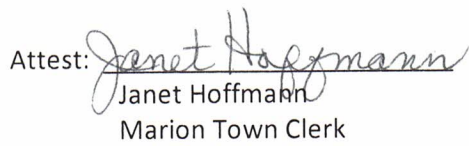 Attest: Janet Hoffmann
Janet Hoffmann
Marion Town Clerk